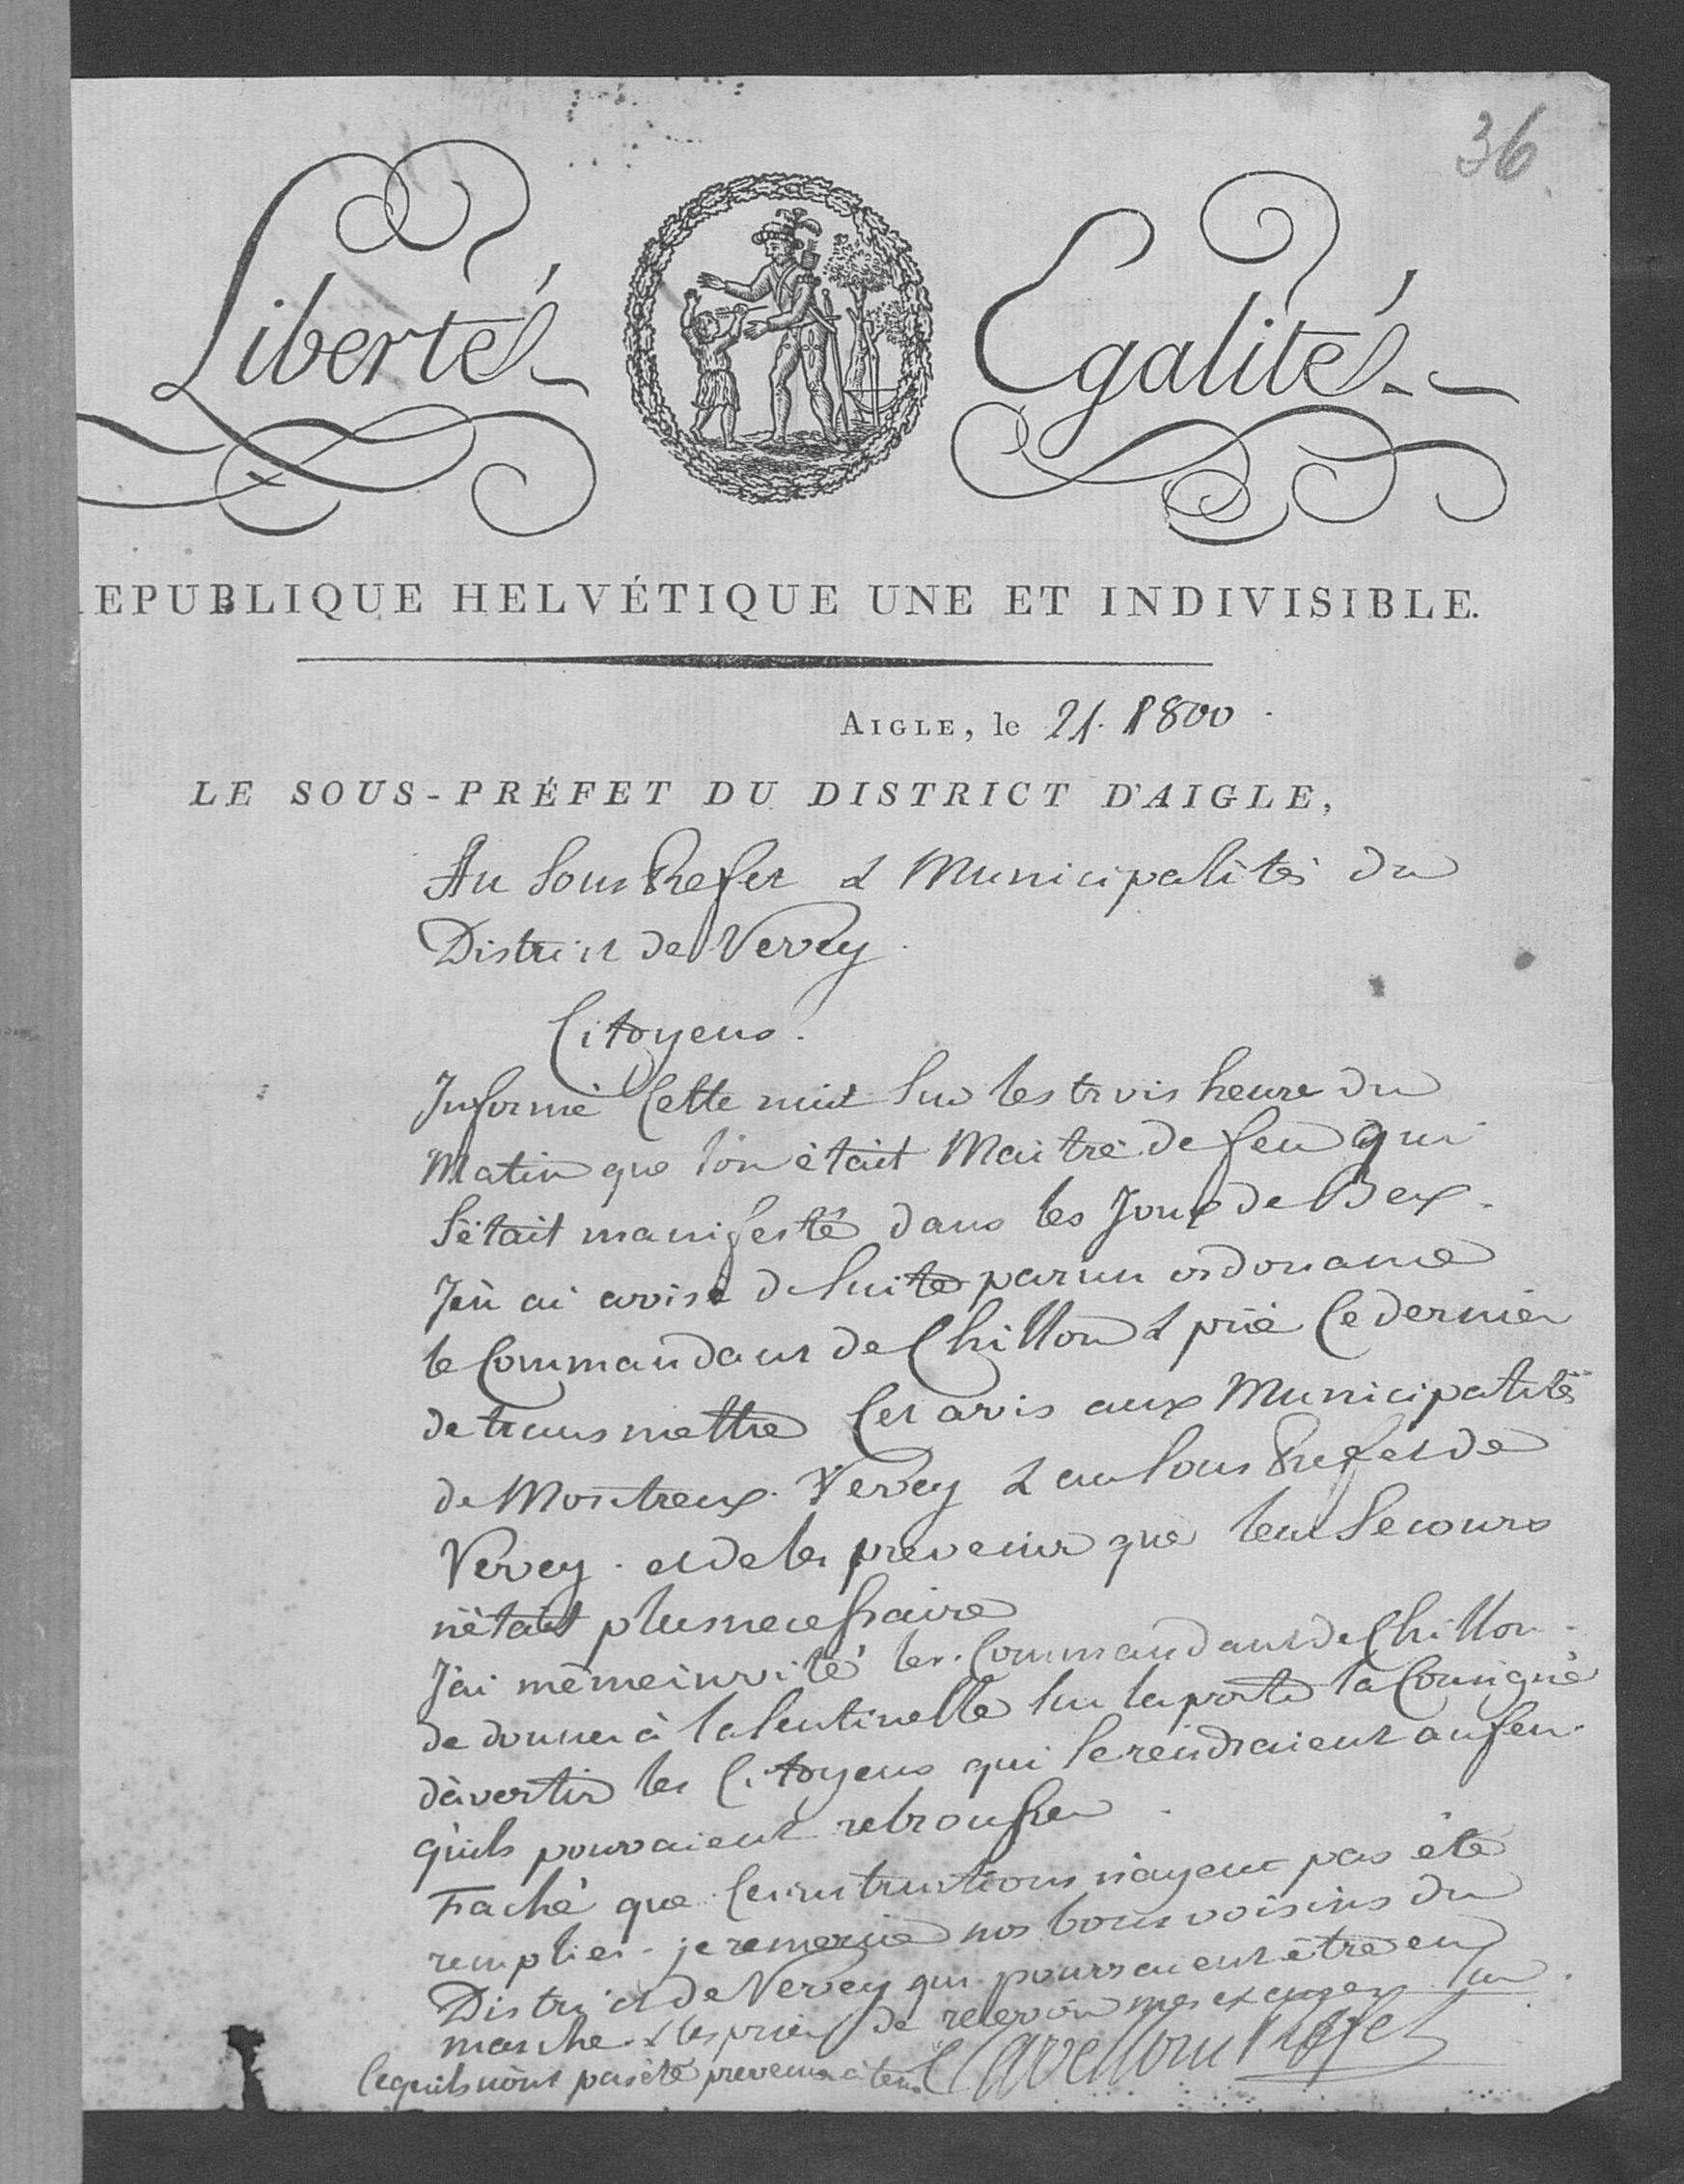 36
Liberté
Egalité
EPUBLIQUE HELVÉTIQUE UNE ET INDIVISIBLE.
AIGLE, le 21. 8 800
LE SOUS-PRÉFET DU DISTRICT D'AIGLE,
Au Sous Prefet & Municipalités du
District de Vevey
Citoyens.
Informé Cette nuit Sur les trois heure du
Matin que l'on était Maitre de feu qui
S'était manifesté dans les Joux de Bex.
J'en ai avisé de Suite par un ordonance
le Commandant de Chillon & prié Ce dernier
de transmettre Cet avis aux Municipalités
de Montreux. Vevey & au Sous Prefet de
Vevey. et de les prevenir que leur Secours
n'était plus necessaire
J'ai même invité le Commandant de Chillon.
de donner à la Sentinelle Sur la porte la Consigne
d'avertir les Citoyens qui Se rendraient au feu
qu'ils pouvaient rebrousser.
Faché que Ces instructions n'ayent pas été
remplies. je remercie nos bons voisins du
District de Vevey qui pourraient être en
marche & les prie de recevoir mes excuses Sur
Ce qu'ils n'ont pas été prevenus à tems Prefet